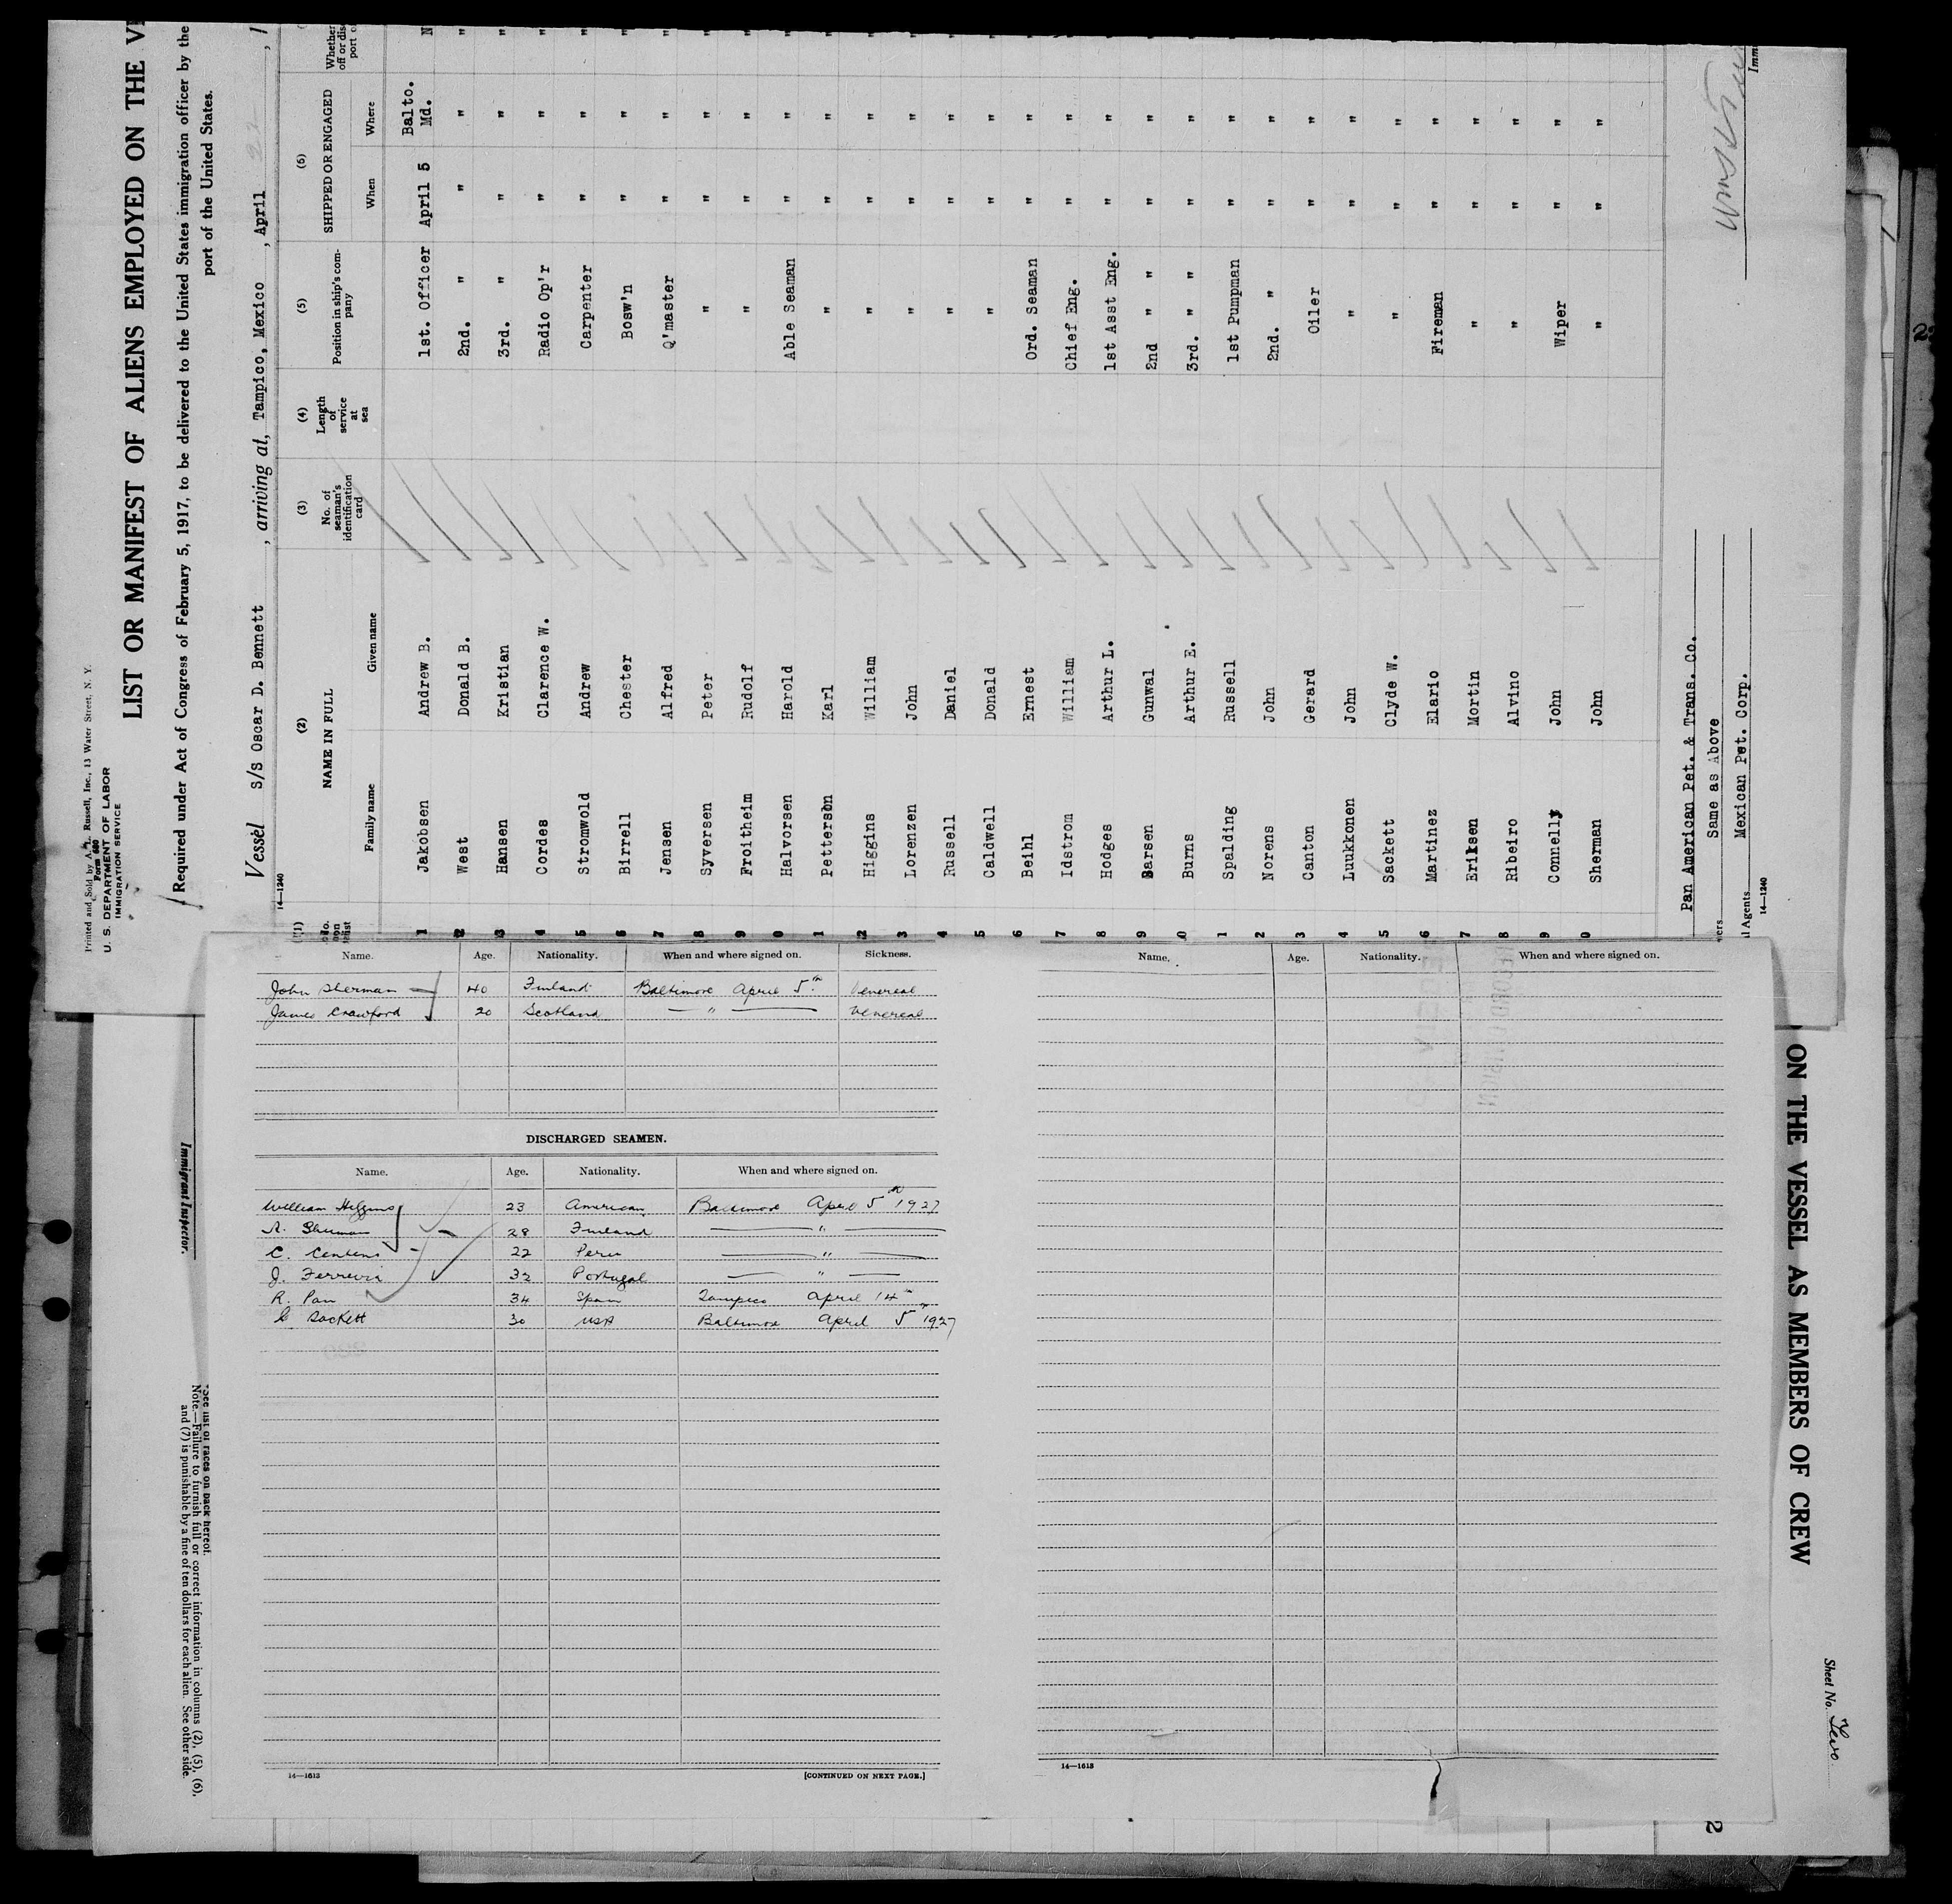 Printed and Sold by A. L. Russell, Inc., 13 Water Street, N. Y.
Form 680
U. S. DEPARTMENT OF LABOR
IMMIGRATION SERVICE
LIST OR MANIFEST OF ALIENS EMPLOYED ON THE
Required under Act of Congress of February 5, 1917, to be delivered to the United States immigration officer by the
port of the United States.
Vessel S/S Oscar D. Bennett , arriving at, Tampico, Mexico , April 22 , 1
14—1240
(1) (2) (3) (4) (5) (6)
NAME IN FULL No. of seaman's identification card Length of service at sea Position in ship's company SHIPPED OR ENGAGED Whether
Family name Given name When Where
1 Jakobsen Andrew B. 1st. Officer April 5 Balto. Md. N
2 West Donald B. 2nd. " " " "
3 Hansen Kristian 3rd. " " " "
4 Cordes Clarence W. Radio Op'r " " "
5 Stromwold Andrew Carpenter " " "
6 Birrell Chester Bosw'n " " "
7 Jensen Alfred Q'master " " "
8 Syversen Peter " " " "
9 Froitheim Rudolf " " " "
0 Halvorsen Harold Able Seaman " " "
1 Petterson Karl " " " "
2 Higgins William " " " "
3 Lorenzen John " " " "
4 Russell Daniel " " " "
5 Caldwell Donald " " " "
6 Beihl Ernest Ord. Seaman " " "
7 Idstrom William Chief Eng. " " "
8 Hodges Arthur L. 1st Asst Eng. " " "
9 Barsen Gunwal 2nd " " " " "
0 Burns Arthur E. 3rd. " " " " "
1 Spalding Russell 1st Pumpman " " "
2 Norens John 2nd. " " " "
3 Canton Gerard Oiler " " "
4 Luukkonen John " " " "
5 Sackett Clyde W. " " " "
6 Martinez Elario Fireman " " "
7 Eriksen Mortin " " " "
8 Ribeiro Alvino " " " "
9 Connelly John Wiper " " "
0 Sherman John " " " "
Pan American Pet. & Trans. Co.
Same as Above
Agents Mexican Pet. Corp.
14—1240
Name. Age. Nationality. When and where signed on. Sickness.
John Sherman 40 Finland Baltimore April 5th Venereal
James Crawford 20 Scotland " Venereal
DISCHARGED SEAMEN.
Name. Age. Nationality. When and where signed on.
William Higgins 23 American Baltimore April 5th 1927
28 Finland "
C. Centens 22 Peru "
J. Ferrevia 32 Portugal "
R. Pan 34 Spain Tampico April 14th
C Sackett 30 USA Baltimore April 5 1927
14—1613 [CONTINUED ON NEXT PAGE.]
Name. Age. Nationality. When and where signed on.
14—1613
Immigrant Inspector.
*See list of races on back hereof.
Note.—Failure to furnish full or correct information in columns (2), (5), (6),
and (7) is punishable by a fine of ten dollars for each alien. See other side.
ON THE VESSEL AS MEMBERS OF CREW
Sheet No. Two
2